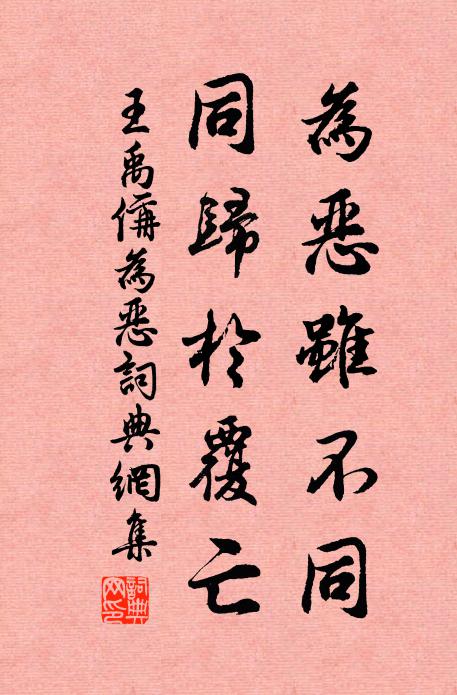 為惡雖不同
同歸於覆亡
王禹偁為惡詞典網集
詞典
网印